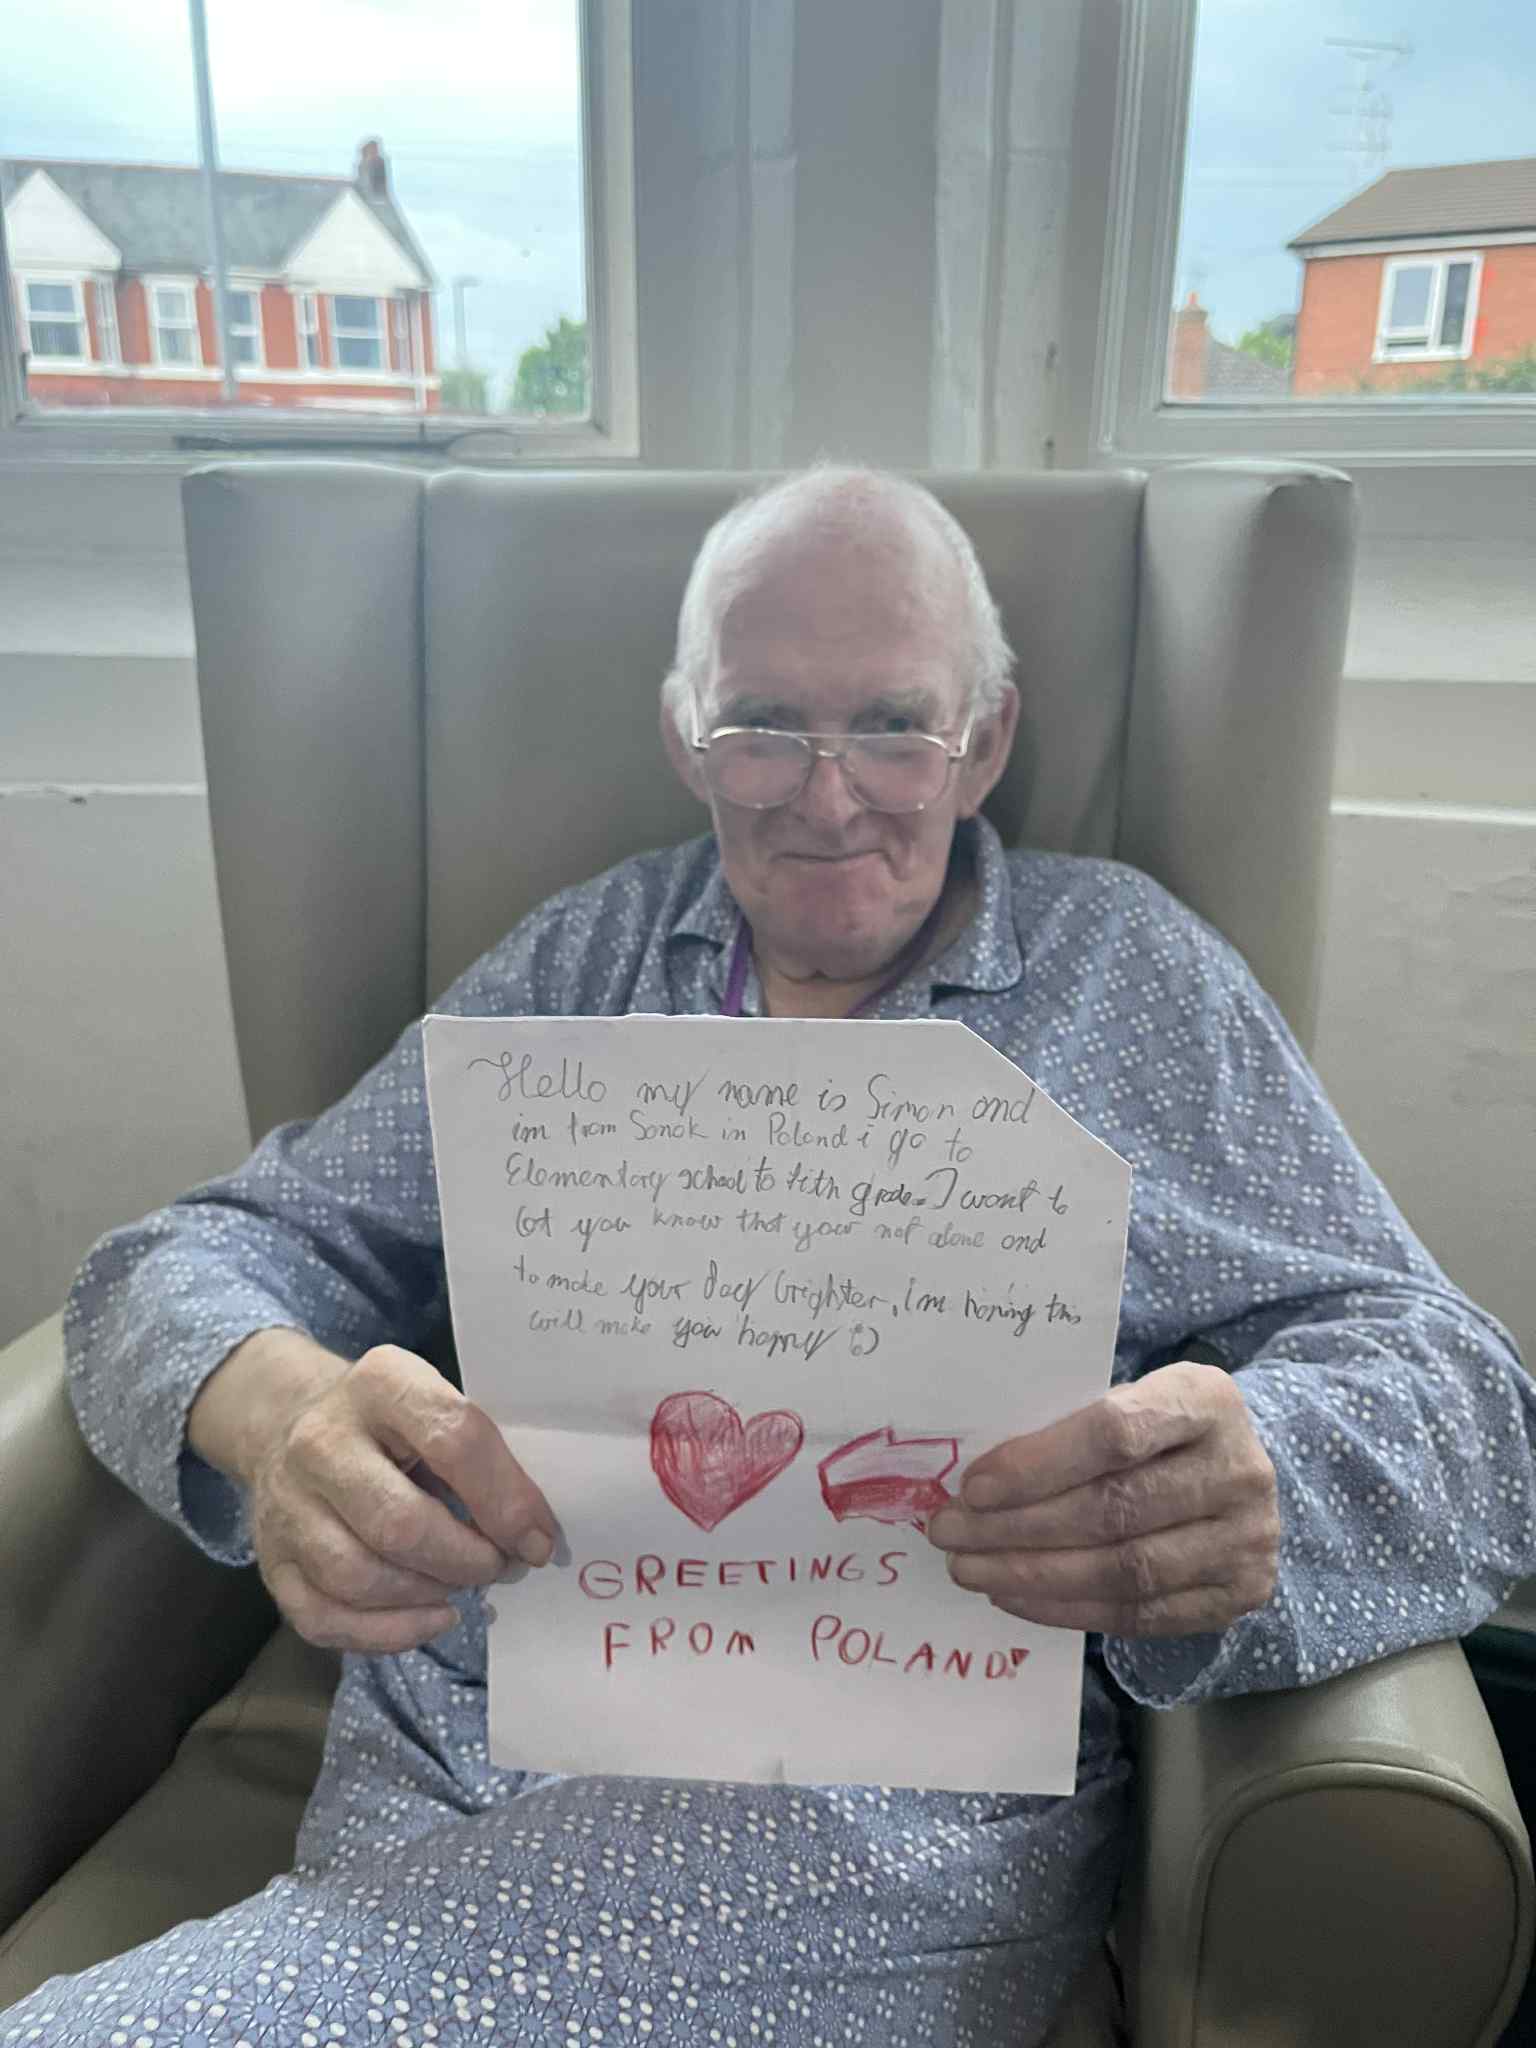 Hello my name is Simon and
im from Sanok in Poland i go to
Elementary school to fith grade. I want to
let you know that your not alone and
to make your day brighter, i'm hoping this
will make you happy :)
GREETINGS
FROM POLAND!